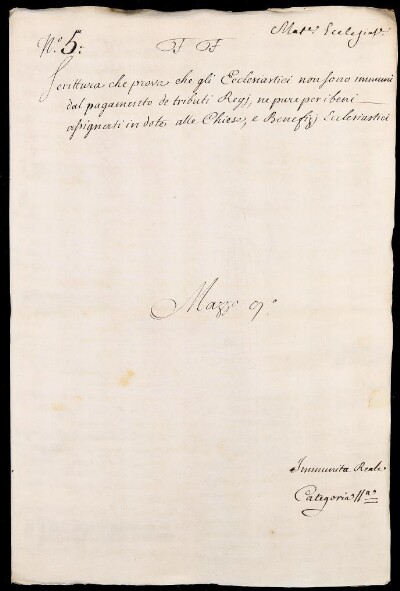 Mat.e Ecclesiast.e
N.o 5: F F
Scrittura che prova che gli Ecclesiastici non sono immuni
dal pagamento de tributi Regj, ne pure per i beni
assignati in dote alle Chiese, e Benefizj Ecclesiastici
Mazzo 9.o
Immunita Reale
Categoria 11.a